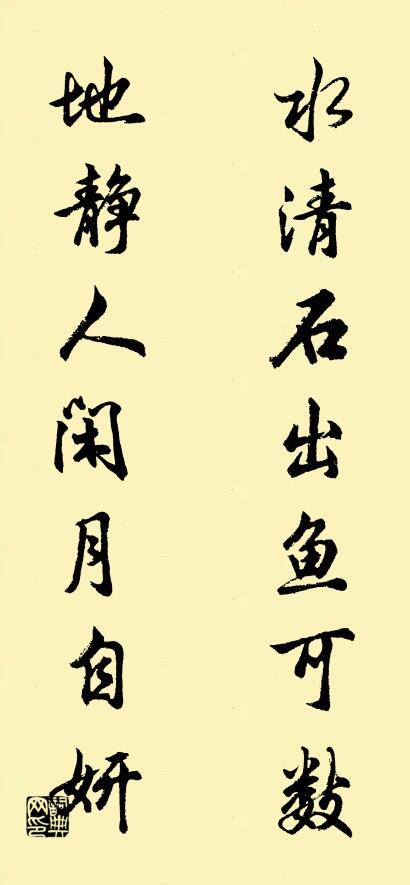 水清石出鱼可数
地静人闲月自妍